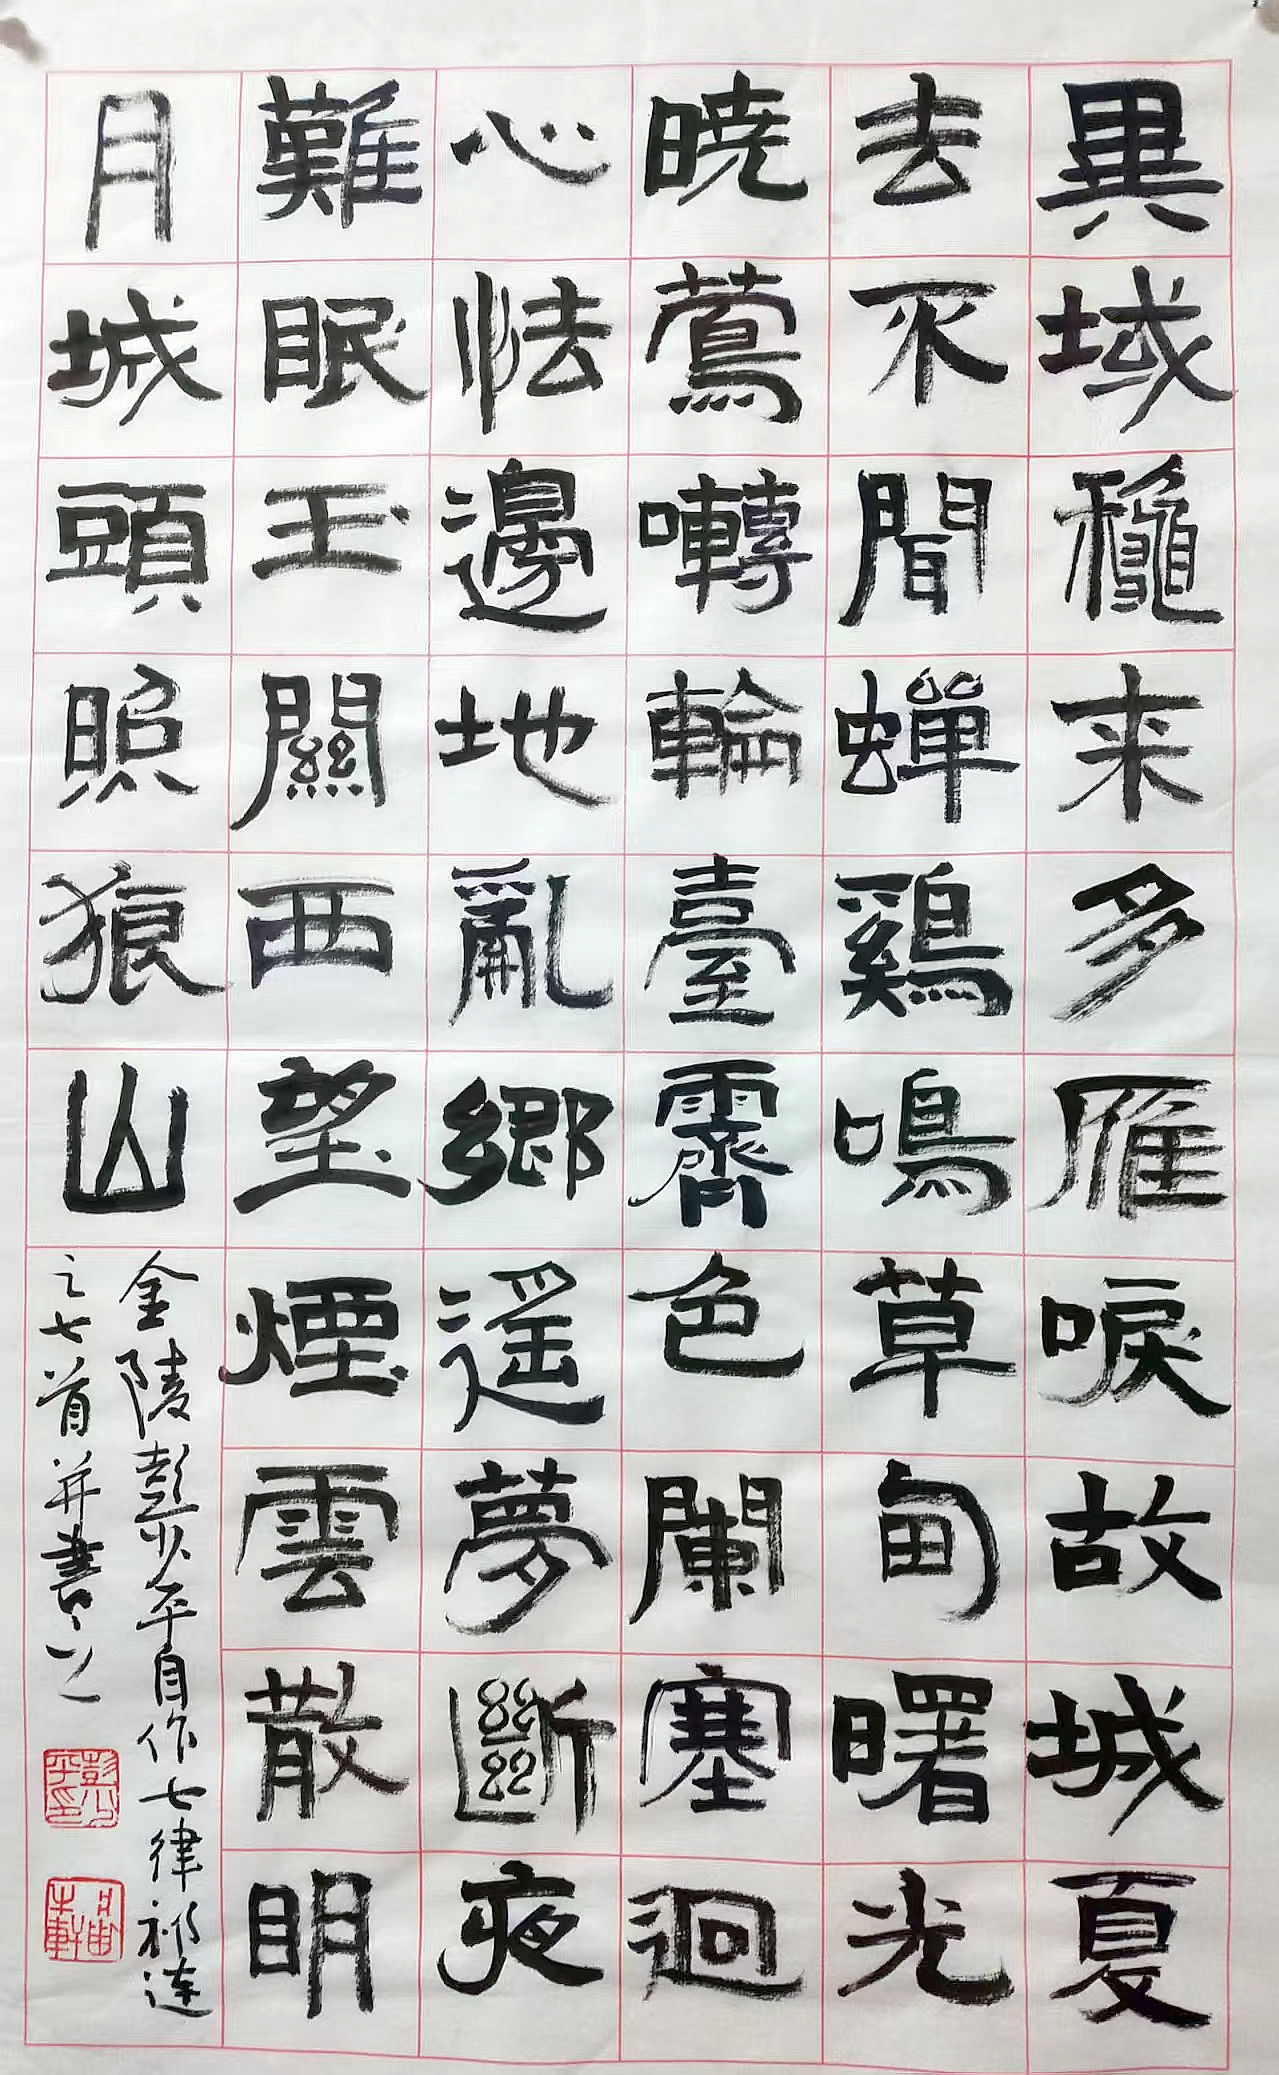 異域龝来多雁唳故城夏
去不聞蟬鷄鳴草甸曙光
暁鶯囀輪臺霽色闌塞迴
心怯邊地亂鄉遥夢斷夜
難眠玉關西望煙雲散明
月城頭照狼山
金陵彭少平自作七律祁连
之七首并書之
彭少平印